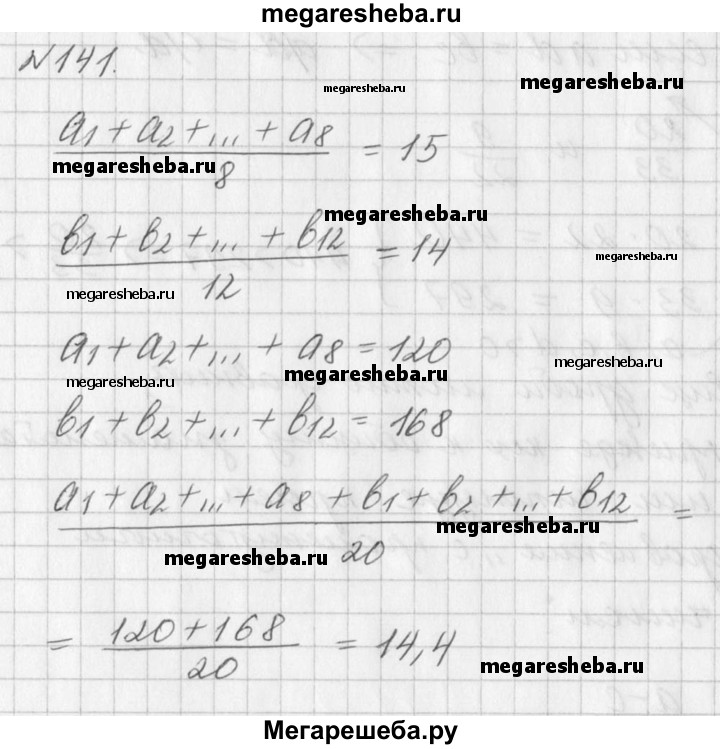 megaresheba.ru
№141.
megaresheba.ru
megaresheba.ru
a1 + a2 + ... + a8 / 8 = 15
megaresheba.ru
megaresheba.ru
b1 + b2 + ... + b12 / 12 = 14
megaresheba.ru
megaresheba.ru
a1 + a2 + ... + a8 = 120
megaresheba.ru
megaresheba.ru
megaresheba.ru
b1 + b2 + ... + b12 = 168
a1 + a2 + ... + a8 + b1 + b2 + ... + b12 / 20 =
megaresheba.ru
megaresheba.ru
= 120 + 168 / 20 = 14,4
megaresheba.ru
Мегарешеба.ру